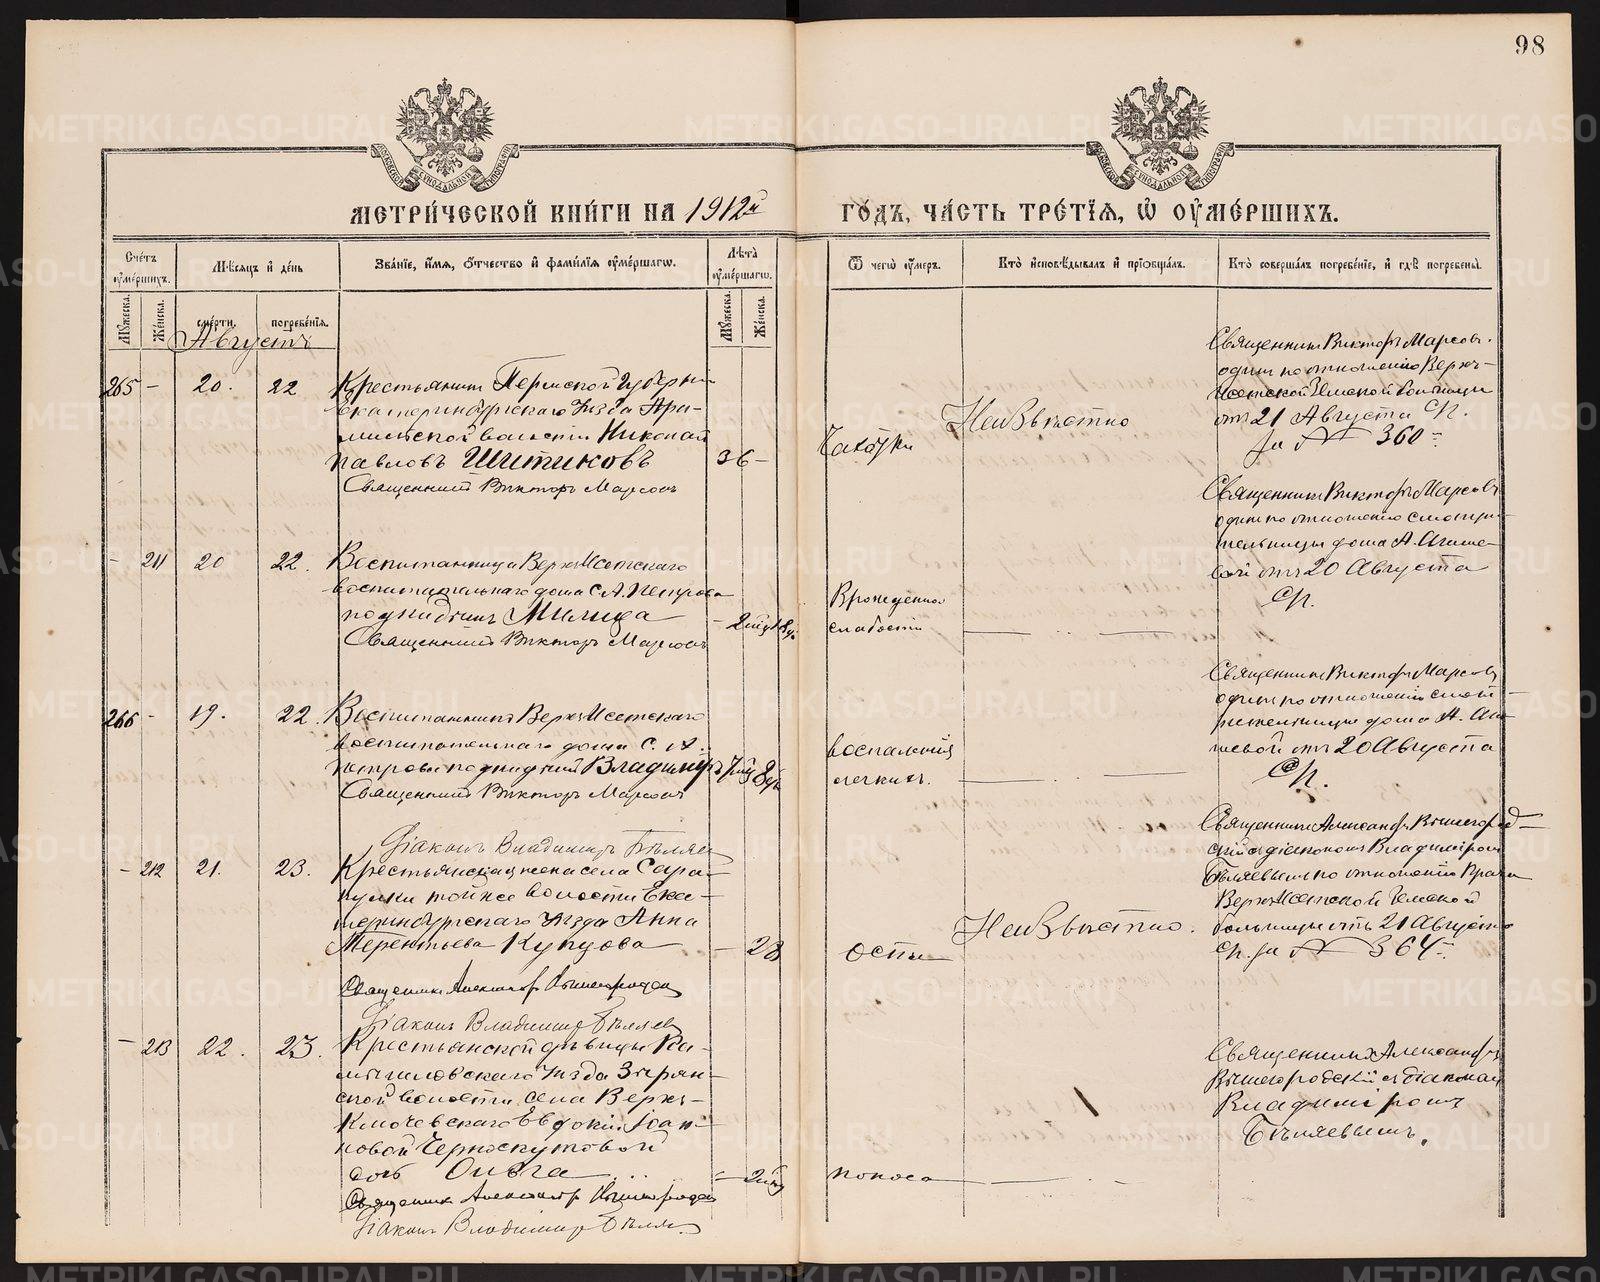 98
МЕТРИ́ЧЕСКОЙ КНИ́ГИ НА 1912й ГО́ДЪ, ЧА́СТЬ ТРЕ́ТІѦ, Ѡ ОУ҆МЕ́РШИХЪ.
Сче́тъ оу҆ме́ршихъ.
Мѣ́сяцъ и҆ де́нь
Зва́ніе, и҆́мѧ, ѻ҆́тчество и҆ фами́лїѧ оу҆ме́ршагѡ.
Лѣ́та оу҆ме́ршагѡ.
Ѿ чегѡ̀ оу҆́меръ.
Кто̀ и҆сповѣ́дывалъ и҆ прїѻбща́лъ.
Кто̀ соверша́лъ погребе́нїе, и҆ гдѣ̀ погребены̀.
Мꙋ́жеска.
Же́нска.
сме́рти.
погребе́нїѧ.
Мꙋ́жеска.
Же́нска.
Августъ
265 – 20. 22
Крестьянинъ Пермской губерніи
Екатеринбургскаго Уѣзда Ара-
мильской волости Николай
Павловъ Шитиковъ 36 –
Священникъ Викторъ Марсовъ
Чахотки
Неизвѣстно
Священникъ Викторъ Марсовъ.
одинъ по отношенію Верхъ-
Исетской Земской больницы
отъ 21 Августа с/г.
за № 360
– 211 20 22.
Воспитанница Верхъ Исетскаго
воспитательнаго дома С. А. Петрова
подкидышъ Милица
Священникъ Викторъ Марсовъ
Врожденно
слабости
Священникъ Викторъ Марсовъ
одинъ по отношенію смотри-
тельницы дома А.
20 Августа
с/г.
266 – 19. 22.
Воспитанникъ Верхъ Исетскаго
воспитательнаго дома С. А.
Петрова подкидышъ Владиміръ
Священникъ Викторъ Марсовъ
воспаленія
легкихъ.
Священникъ Викторъ Марсовъ
одинъ по отношенію смот-
рительницы дома А.
отъ 20 Августа
с/г.
Діаконъ Владиміръ Бѣляевъ
– 212 21. 23.
Крестьянская жена села Сара-
пулки той же волости Ека-
теринбургскаго Уѣзда Анна
Терентьева Купцова – 28
Священникъ Александръ Вышегородскій
Діаконъ Владиміръ Бѣляевъ
Оспы
Неизвѣстно.
Священникъ Александръ Вышегород-
скій съ діакономъ Владиміромъ
Бѣляевымъ по отношенію Врача
Верхъ Исетской Земской
больницы отъ 21 Августа
с/г. за № 364
– 213 22. 23.
Крестьянской дѣвицы Ка-
мышловскаго Уѣзда Зырян-
ской волости села Верхъ-
Ключевскаго Евдокіи Іоан-
новой Черноскутовой
дочь Ольга
Священникъ Александръ Вышегородскій
Діаконъ Владиміръ Бѣляевъ.
поноса
Священникъ Александръ
Вышегородскій съ діакономъ
Владиміромъ
Бѣляевымъ.